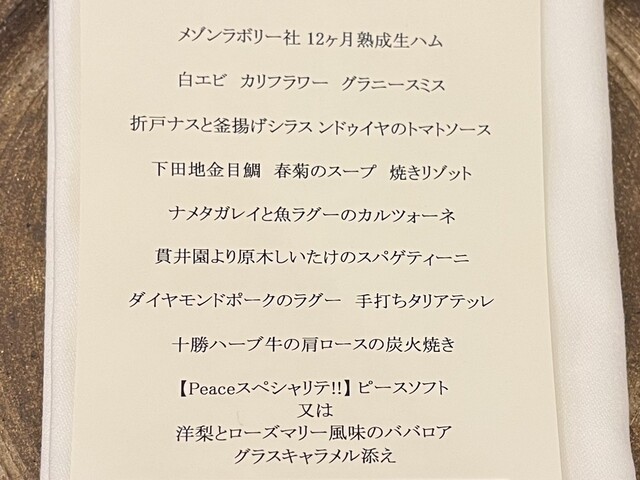 メゾンラボリー社 12ヶ月熟成生ハム
白エビ　カリフラワー　グラニースミス
折戸ナスと釜揚げシラス ンドゥイヤのトマトソース
下田地金目鯛　春菊のスープ　焼きリゾット
ナメタガレイと魚ラグーのカルツォーネ
貫井園より原木しいたけのスパゲティーニ
ダイヤモンドポークのラグー　手打ちタリアテッレ
十勝ハーブ牛の肩ロースの炭火焼き
【Peaceスペシャリテ!!】ピースソフト
又は
洋梨とローズマリー風味のババロア
グラスキャラメル添え